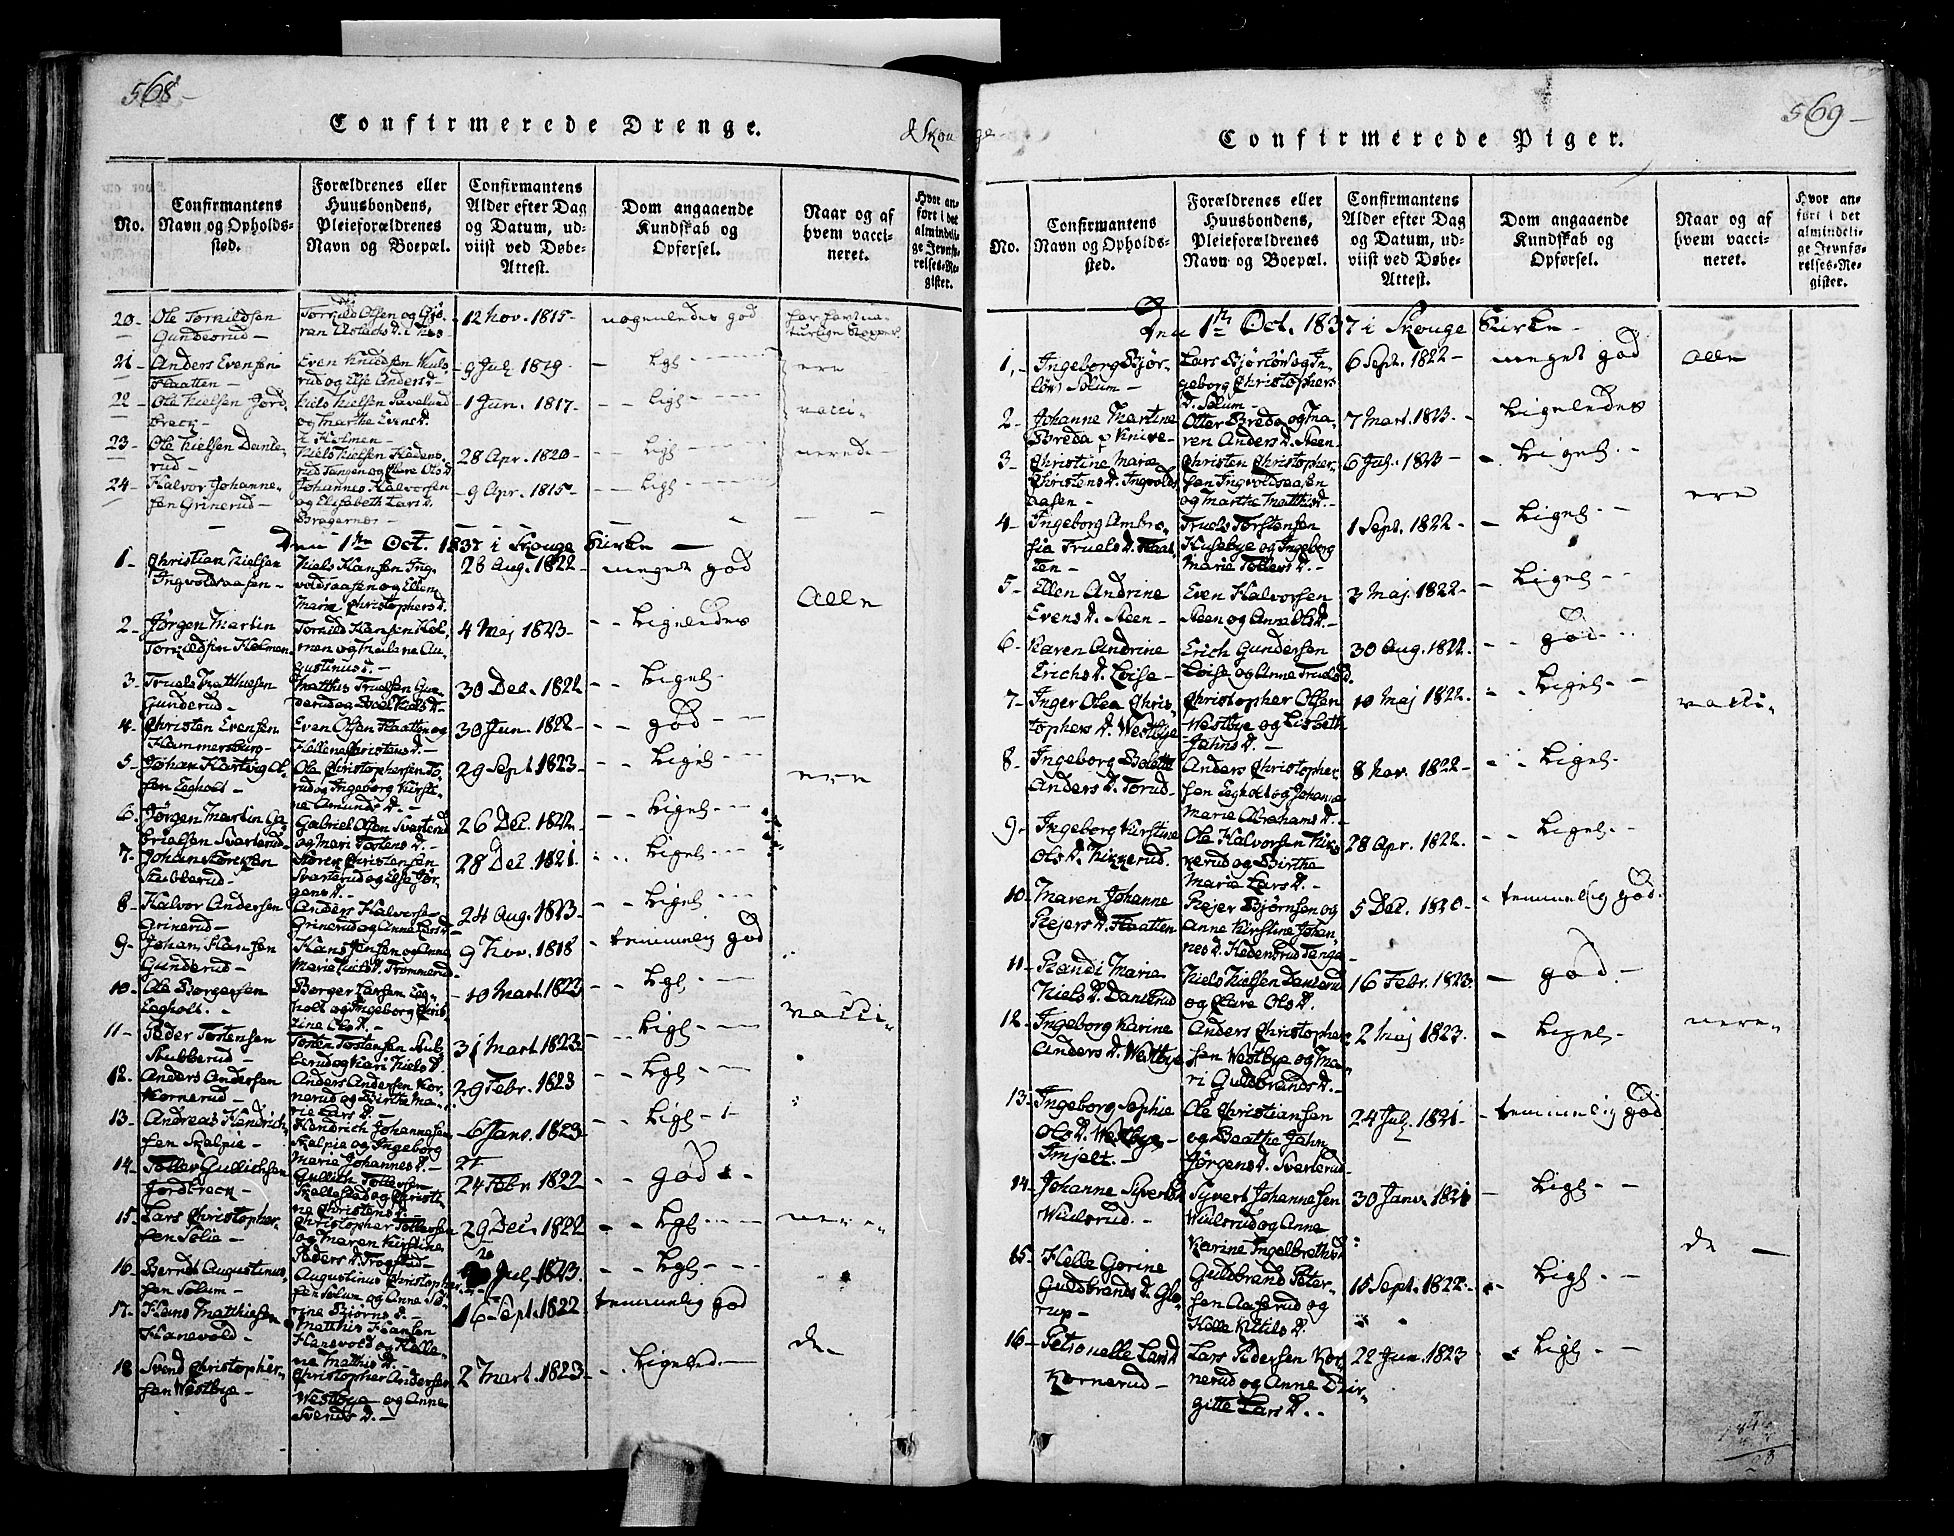 568-
Confirmerede Drenge.
Skou
No.
Confirmantens
Navn og Opholds-
sted.
Forældrenes eller
Huusbondens,
Pleieforældrenes
Navn og Boepæl.
Confirmantens
Alder efter Dag
og Datum, ud-
viist ved Døbe-
Attest.
Dom angaaende
Kundskab og
Opførsel.
Naar og af
hvem vacci-
neret.
Hvor an-
ført i det
almindeli-
ge Jevnfø-
relses-Re-
gister.
20- Ole Torkildsen
Gunderud-
Torkild Olsen og Gjø-
12 Nov. 1815-
nogenledes god
21- Anders Evensen
Flaatten-
Even Knudsen
rud og Else Andersd-
9 Jul. 1819-
Lgl
ere
22- Ole Nielsen Jord-
bræk-
og Marthe Evensd.
i Holmen-
1 Jun. 1817-
Ligl
vacci-
23- Ole Nielsen Dante-
rud-
28 Apr. 1820-
Ligl
nerede-
24- Halvor Johanne-
sen Grinerud-
Johannes Halvorsen
og Elisabeth Larsd.
Bragernes-
9 Apr. 1815-
Ligl
Den 1ste Oct. 1837 i Skouge Kirke-
1- Christian Nielsen
Ingvoldsaasen-
Niels Hansen Ing-
voldsaasen og Ellen
Marie Christophersd.
28 Aug. 1822-
meget god
Alle
2- Jørgen Martin
Torkildsen Holmen
Torkild Hansen Hol-
men og Helene Au-
gustinusd.-
4 Maj 1823-
Ligeledes
3- Truels Matthiesen
Gunderud-
Matthis Truelsen Gun-
30 Dec. 1822
Ligel-
4- Christen Evensen
Hammersburg-
Even Olsen Flaatten og
Hellene Christensd.-
30 Jun. 1822-
god
5- Johan Hartvig Ol-
sen Eegholt-
Ole Christophersen To-
rud og Ingeborg Kirsti-
ne Amundsd.-
29 Sept 1823-
Ligel-
ere
6- Jørgen Martin Ga-
brielsen Svarterud-
Gabriel Olsen Svarterud
og Mari Tostensd.-
26 Dec. 1822-
Ligel-
7- Johan Størksen
Stubberud-
Størker Christensen
Svarterud og Else Jør-
gensd.-
28 Dec. 1821.
Ligel-
8- Halvor Andersen
Grinerud-
Anders Halvorse-
Grinerud og Anne Larsd-
24 Aug. 1823-
Ligel
9- Johan Hansen
Gunderud-
Hans Jensen og Anne
Marie Nielsd. Trommerud-
9 Nov. 1818
temmelig god
10- Ole Børgersen
Eegholt.-
Børger Larsen Eeg-
holt og Ingeborg Chris-
tine Olsd.-
10 Mart. 1823
Lgl-
vacci-
11- Peder Tostensen
Stubberud-
Tosten Tostensen Stub-
berud og Kari Nielsd.
31 Mart. 1823-
Ligl-
12. Anders Andersen
Kornerud-
Anders Andersen Kor-
nerud og Birthe Ma-
rie Larsd-
29 Febr. 1823
Lgl-
13- Andreas Hendrich-
sen Skalpie-
Hendrich Johannesen
Skalpie og Ingeborg
Marie Johannesd.-
6 Jans. 1823-
Ligl-
14- Toller Gullichsen
Jordbræck-
Gullich Tollefsen
Skallestad og Christi-
ne Christensd.-
24 Febr. 1822
god-
15- Lars Christopher-
sen Solie-
Christopher Tollefsen
og Maren Kirstine
Pedersd. Frogstad-
29 Dec. 1822
Lgl-
nere-
16- Berndt Augustinus-
sen Solum-
Augustinus Christopher-
sen Solum og Anne Ca-
rine Bjørnsd.-
Jul. 1823.
Lgl-
17- Hans Matthiesen
Hanevold-
Matthis Hansen
Hanevold og Helle-
ne Matthisd.-
16 Sept. 1822
temmelig god
18 Svend Christopher-
sen Westbye-
Christopher Andersen
Westbye og Anne
Svendsd.-
2 Mart. 1823-
Ligeled.-
de-
569-
Confirmerede Piger.
No.
Confirmantens
Navn og Opholds-
sted.
Forældrenes eller
Huusbondens,
Pleieforældrenes
Navn og Boepæl.
Confirmantens
Alder efter Dag
og Datum, ud-
viist ved Døbe-
Attest.
Dom angaaende
Kundskab og
Opførsel.
Naar og af
hvem vacci-
neret.
Hvor an-
ført i det
almindeli-
ge Jevnfø-
relses-Re-
gister.
Den 1ste Oct. 1837 i Skouge Kirke-
1,- Ingeborg Bjør-
Solum-
Lars og In-
geborg Christophers
D. Solum-
6 Sept. 1822-
meget god
Alle
2- Johanne Martine
Breda Knive-
Otter Breda og Ma-
ren Andersd. Steen-
7 Mart. 1823-
Ligeledes
3- Christine Marie
Christensd. Ingvolds
aasen-
Christen Christopher-
sen Ingvoldsaasen
og Marthe Matthisd.-
6 Jul. 1823-
Ligel-
ere
4- Ingeborg Ambro-
sia Truelsd. Flaat-
ten-
Truels Torstensen
Husebye og Ingeborg
Marie Tollersd.-
1 Sept. 1822-
Ligel-
5- Ellen Andrine
Evensd. Steen-
Even Halvorsen
Steen og Anne Olsd.-
3 Maj 1822-
Ligel-
6- Karen Andrine
Erichsd. Loise-
Erich Gundersen
Loise og Anne Truelsd
30 Aug. 1822.
god-
7- Inger Olea Chris-
tophersd. Westbye
Christopher Olsen
Westbye og Lisbeth
Jahnsd.-
10 Maj 1822.
Ligel-
vacci-
8- Ingeborg Bolette
Andersd. Torud-
Anders Christopher-
sen Eegholt og Johanne
Marie Abrahamsd.-
8 Nov. 1822-
Ligel-
9- Ingeborg Kirstine
Olsd. Nikkerud.
Ole Halvorsen Nik-
kerud og Birthe
Marie Larsd.-
28 Apr. 1822.
Ligel-
10- Maren Johanne
Rejersd. Flaatten
Rejer Bjørnsen og
Anne Kirstine Johan-
nesd. Hedensrud Tange-
5 Dec. 1820-
temmelig god.
11- Randi Marie
Nielsd. Danterud
Niels Nielsen Danterud
og Olsd.-
16 Febr. 1823.
god-
12- Ingeborg Karine
Andersd. Westbye
Anders Christopher-
sen Westbye og Ma-
ri Guldbrandsd.-
2 Maj 1823.
Ligel-
nere-
13- Ingeborg Sophie
Olsd. Westbye-
Ole Christiansen
og Beathe Jahn
Jørgensd. Svarterud-
24 Jul. 1821-
temmelig god
14- Johanne Syvertsd
Wiulsrud.-
Syvert Johannesen
Wiulsrud og Anne
Karine Ingelbrethsd
30 Janv. 1821
Ligl-
15- Helle Gorine
Guldbrandsd. Glo-
rup-
Guldbrand Peter-
sen Aaserud og
Helle Kittilsd.
15 Sept. 1822-
Ligl-
de-
16- Petronelle Larsd
Kornerud-
Lars Pedersen Kor-
nerud og Anne Bir-
gitte Larsd.-
22 Jun. 1823
Ligl-